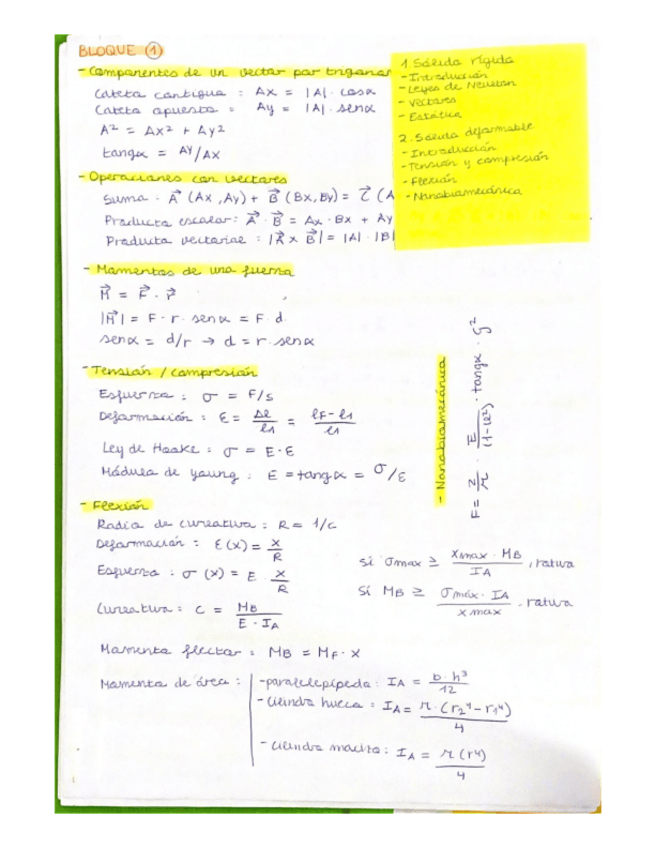 BLOQUE (1)
- Componentes de un vector por trigonom
Cateto contiguo : Ax = |A| · cosα
Cateto opuesto : Ay = |A| · senα
A² = Ax² + Ay²
tangα = Ay/Ax
- Operaciones con vectores
Suma : A⃗ (Ax, Ay) + B⃗ (Bx, By) = C⃗ (A
Producto escalar : A⃗ · B⃗ = Ax · Bx + Ay
Producto vectorial : |A⃗ x B⃗| = |A| · |B|
1. Sólido rígido
- Introducción
- Leyes de Newton
- Vectores
- Estática
2. Sólido deformable
- Introducción
- Tensión y compresión
- Flexión
- Nanobiomecánica
- Momentos de una fuerza
M⃗ = F⃗ · r⃗
|M⃗| = F · r · senα = F · d
senα = d/r → d = r · senα
- Tensión / compresión
Esfuerzo : σ = F/S
Deformación : ε = Δl/l1 = (lF - l1)/l1
Ley de Hooke : σ = E · ε
Módulo de young : E = tangα = σ/ε
- Nanobiomecánica
F = 2/π · E/(1-υ²) · tangα · ζ²
- Flexión
Radio de curvatura : R = 1/c
Deformación : ε(x) = x/R
Esfuerzo : σ(x) = E · x/R
Curvatura : c = MB/(E · IA)
Si σmax ≥ (xmax · MB)/IA , rotura
Si MB ≥ (σmáx · IA)/xmax , rotura
Momento flector : MB = MF · x
Momento de área :
- paralelepípedo : IA = b · h³/12
- cilindro hueco : IA = π · (r2⁴ - r1⁴)/4
- cilindro macizo : IA = π (r⁴)/4